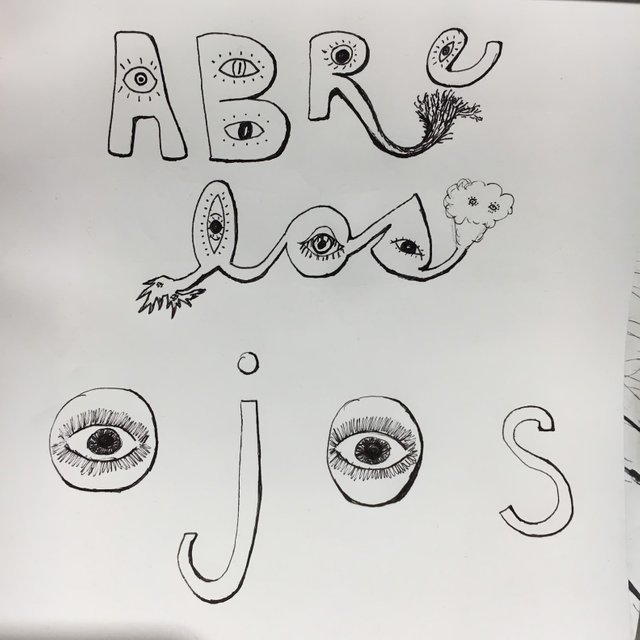 ABRe
los
ojos